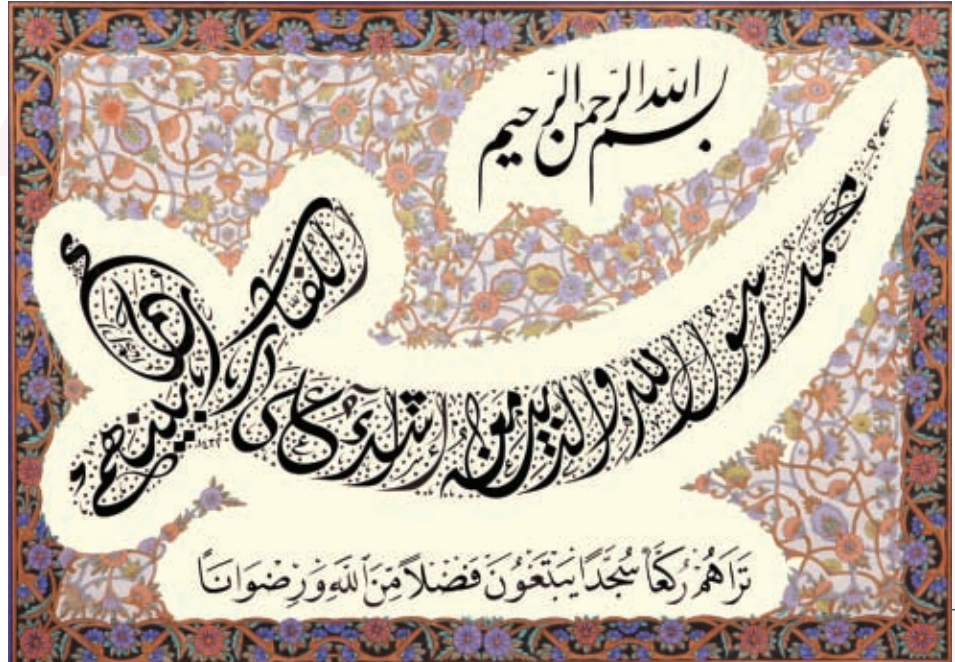 بسم الله الرحمن الرحيم
محمد رسول الله والذين معه أشداء على الكفار رحماء بينهم
تَرَاهُمْ رُكَّعًا سُجَّدًا يَبْتَغُونَ فَضْلًا مِّنَ ٱللَّهِ وَرِضْوَانًا